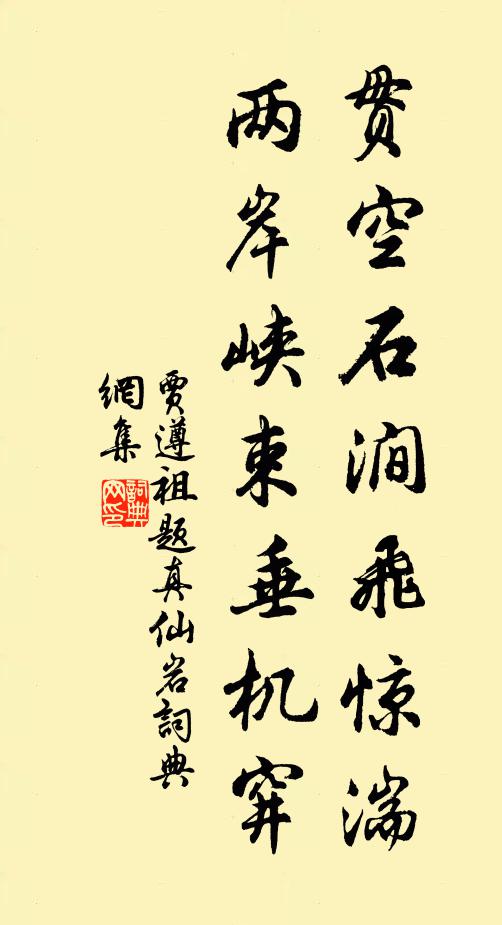 贯空石涧飞惊湍
两岸峡束垂机穽
贾遵祖题真仙岩詞典
網集
詞典網印